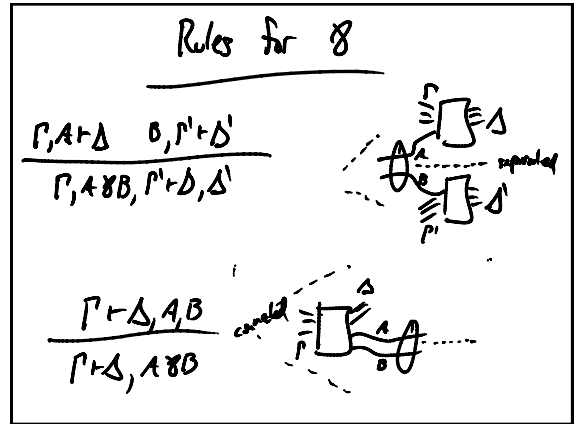 Rules for ⅋
Γ, A ⊢ Δ    B, Γ' ⊢ Δ'
Γ, A ⅋ B, Γ' ⊢ Δ, Δ'
Γ
Δ
A
separated
B
Δ'
Γ'
Γ ⊢ Δ, A, B
Γ ⊢ Δ, A ⅋ B
connected
Δ
Γ
A
B